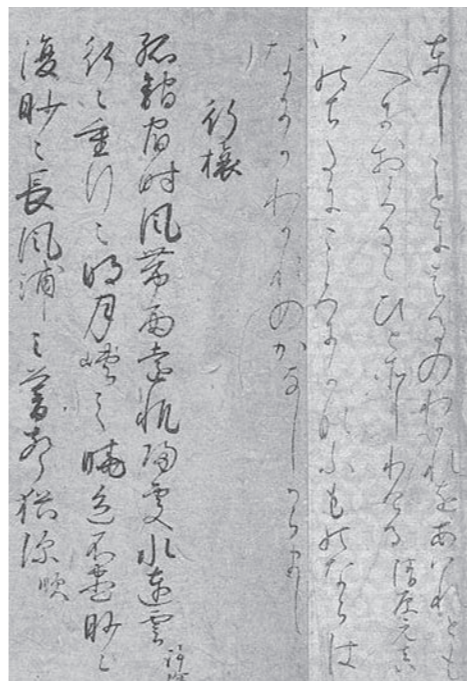 としことにはるのわかれをあはれとも
人におくるゝひとそしりける 清原元真
いのちたにこゝろにかなふものならは
なにかわかれのかなしからまし
行旅
孤館宿時風帯雨遠帆帰處水連雲 許渾
行々重行々明月峡之暁色不盡眇々
復眇々長風浦之暮聲猶深 順